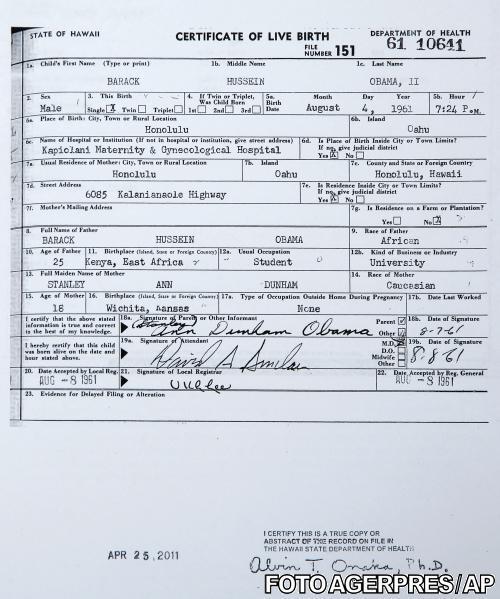 STATE OF HAWAII CERTIFICATE OF LIVE BIRTH DEPARTMENT OF HEALTH
FILE NUMBER 151 61 10641
1a. Child's First Name (Type or print) 1b. Middle Name 1c. Last Name
BARACK HUSSEIN OBAMA, II
2. Sex 3. This Birth 4. If Twin or Triplet, Was Child Born 5a. Birth Date Month Day Year 5b. Hour
Male Single X Twin Triplet 1st 2nd 3rd August 4, 1961 7:24 P.M.
6a. Place of Birth: City, Town or Rural Location 6b. Island
Honolulu Oahu
6c. Name of Hospital or Institution (If not in hospital or institution, give street address) 6d. Is Place of Birth Inside City or Town Limits? If no, give judicial district
Kapiolani Maternity & Gynecological Hospital Yes X No
7a. Usual Residence of Mother: City, Town or Rural Location 7b. Island 7c. County and State or Foreign Country
Honolulu Oahu Honolulu, Hawaii
7d. Street Address 7e. Is Residence Inside City or Town Limits? If no, give judicial district
6085 Kalanianaole Highway Yes X No
7f. Mother's Mailing Address 7g. Is Residence on a Farm or Plantation?
Yes No X
8. Full Name of Father 9. Race of Father
BARACK HUSSEIN OBAMA African
10. Age of Father 11. Birthplace (Island, State or Foreign Country) 12a. Usual Occupation 12b. Kind of Business or Industry
25 Kenya, East Africa Student University
13. Full Maiden Name of Mother 14. Race of Mother
STANLEY ANN DUNHAM Caucasian
15. Age of Mother 16. Birthplace (Island, State or Foreign Country) 17a. Type of Occupation Outside Home During Pregnancy 17b. Date Last Worked
18 Wichita, Kansas None
I certify that the above stated information is true and correct to the best of my knowledge. 18a. Signature of Parent or Other Informant Parent Other 18b. Date of Signature
(Stanley) Ann Dunham Obama 8-7-61
I hereby certify that this child was born alive on the date and hour stated above. 19a. Signature of Attendant M.D. D.O. Midwife Other 19b. Date of Signature
David A Sinclair 8-8-61
20. Date Accepted by Local Reg. 21. Signature of Local Registrar 22. Date Accepted by Reg. General
AUG -8 1961 AUG -8 1961
23. Evidence for Delayed Filing or Alteration
APR 25, 2011
I CERTIFY THIS IS A TRUE COPY OR
ABSTRACT OF THE RECORD ON FILE IN
THE HAWAII STATE DEPARTMENT OF HEALTH
Alvin T. Onaka, Ph.D.
FOTO AGERPRES/AP